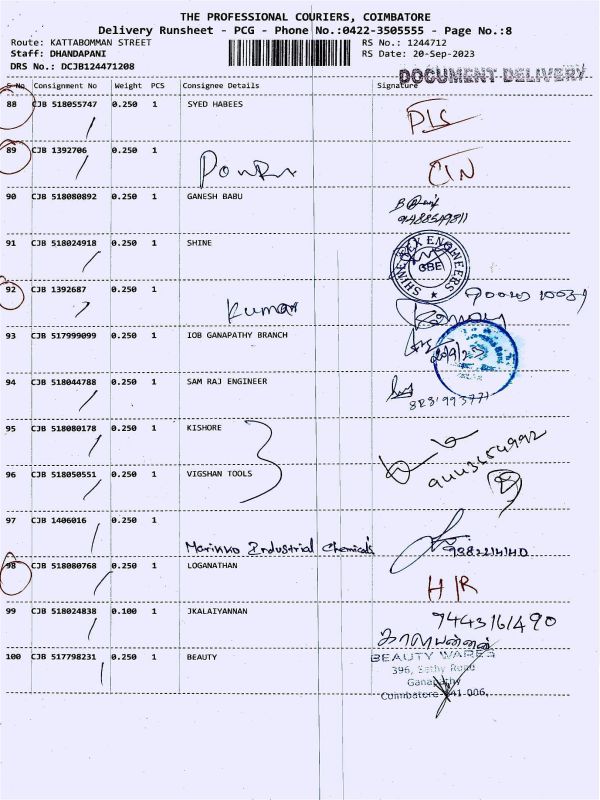 THE PROFESSIONAL COURIERS, COIMBATORE
Delivery Runsheet - PCG - Phone No.:0422-3505555 - Page No.:8
Route: KATTABOMMAN STREET RS No.: 1244712
Staff: DHANDAPANI RS Date: 20-Sep-2023
DRS No.: DCJB124471208
DOCUMENT DELIVERY
S No Consignment No Weight PCS Consignee Details Signature
88 CJB 518055747 0.250 1 SYED HABEES
89 CJB 1392706 0.250 1
90 CJB 518080892 0.250 1 GANESH BABU
91 CJB 518024918 0.250 1 SHINE
SHINE ENGINEERS
92 CJB 1392687 0.250 1
Kumar
93 CJB 517999099 0.250 1 IOB GANAPATHY BRANCH
94 CJB 518044788 0.250 1 SAM RAJ ENGINEER
95 CJB 518080178 0.250 1 KISHORE
96 CJB 518050551 0.250 1 VIGSHAN TOOLS
97 CJB 1406016 0.250 1
Industrial Chemicals
98 CJB 518080768 0.250 1 LOGANATHAN
99 CJB 518024838 0.100 1 JKALAIYANNAN
7443161490
100 CJB 517798231 0.250 1 BEAUTY
BEAUTY WARES
396, Sathy Road
Ganapathy
Coimbatore 641 006.